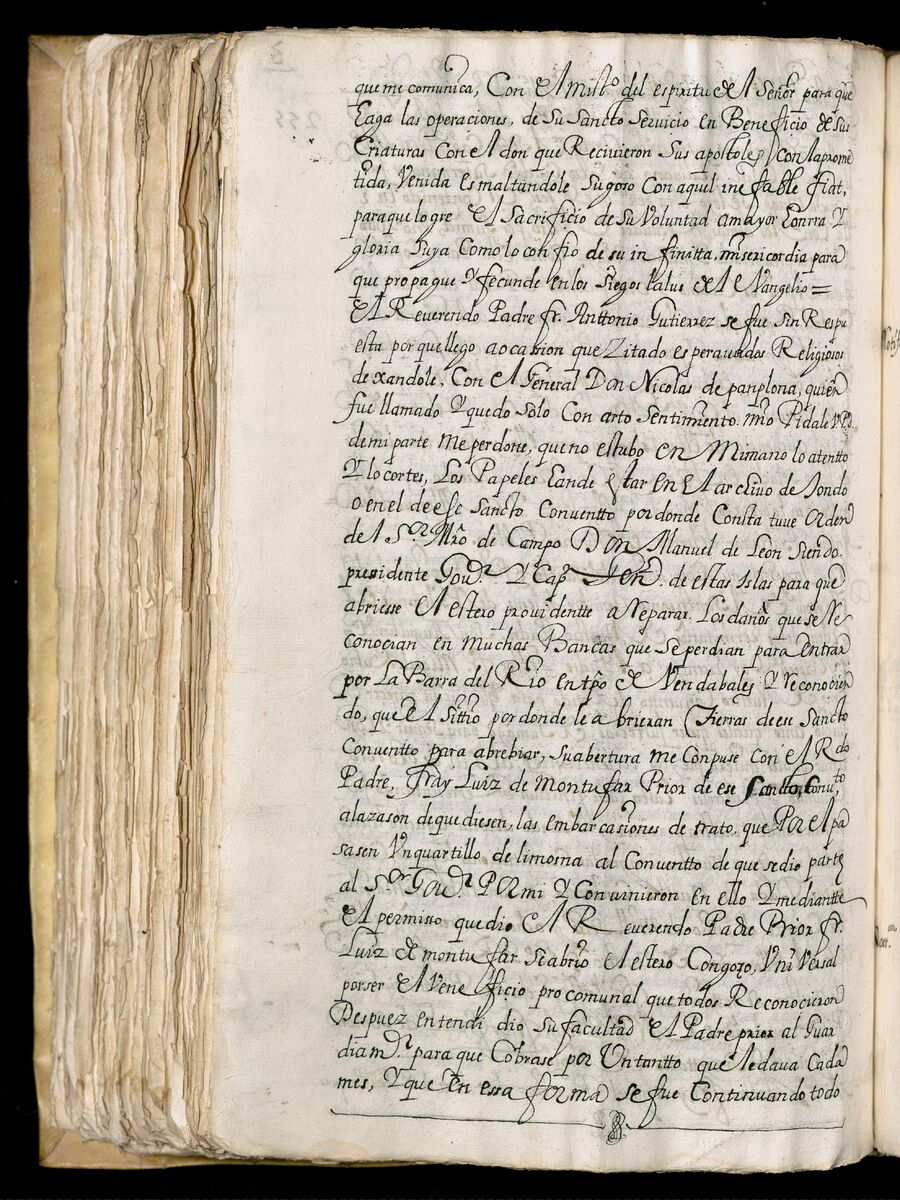 que me comunica, Con el mis.º del espiritu del Señor para que
Eaga las operaciones, de su Sancto Servicio en Beneficio de sus
Criaturas Con el don que Recivieron Sus apostoles, con la prome
tida, Venida esmaltandole su goso Con aquel inefable fiat,
para que logre el Sacrificio de su Voluntad a mayor honrra Y
gloria suya Como lo confio de su infinitta, misericordia para
que propague Y fecunde en los Siegos del Evangelio =
El Reverendo Padre fr. Anttonio Gutierrez se fue sin Respu
esta por que llego a ocassion que Zitado esperava dos Religiosos
dexandole, Con el General Don Nicolas de panplona, quien
fue llamado Y quedo solo Con arto Sentimiento mio Pidale VPd.
de mi parte me perdone, que no estubo en Mi mano lo atentto
Y lo cortes, Los Papeles han de estar en el archivo de Tondo
o en el de ese Sancto Conventto por donde Consta tuve orden
del S.or Mro de Campo Don Manuel de Leon Siendo.
presidente Gov.r Y Cap.n Gen. de estas Islas para que
abriesse el estero providentte a Reparar. Los daños que se Re
conocian en muchas Bancas que se perdian para entrar
por La Barra del Rio en tpo de Vendabales Y reconocien
do, que el sittio por donde le abrieran (Tierras de ese Sancto
Conventto para abrebiar, su abertura me conpuse con el Rdo
Padre, fray Luiz de Montufar Prior de ese Sancto, Convto,
a la razon de que diesen, las embarcasiones de trato, que Por el pa
sasen Un quartillo de limosna al Conventto de que se dio parte
al S.or Gov.r Por mi Y Convinieron en ello Y mediantte
el permisso que dio el Reverendo Padre Prior fr.
Luiz de montufar se abrio el estero Con gozo, Universal
por ser el Veneficio pro comunal que todos Reconocieron
Despuez entendi dio su facultad el Padre prior al Guar
dia m.r para que Cobrase por Un tantto que le dava Cada
mes, Y que en essa forma se fue Continuando todo